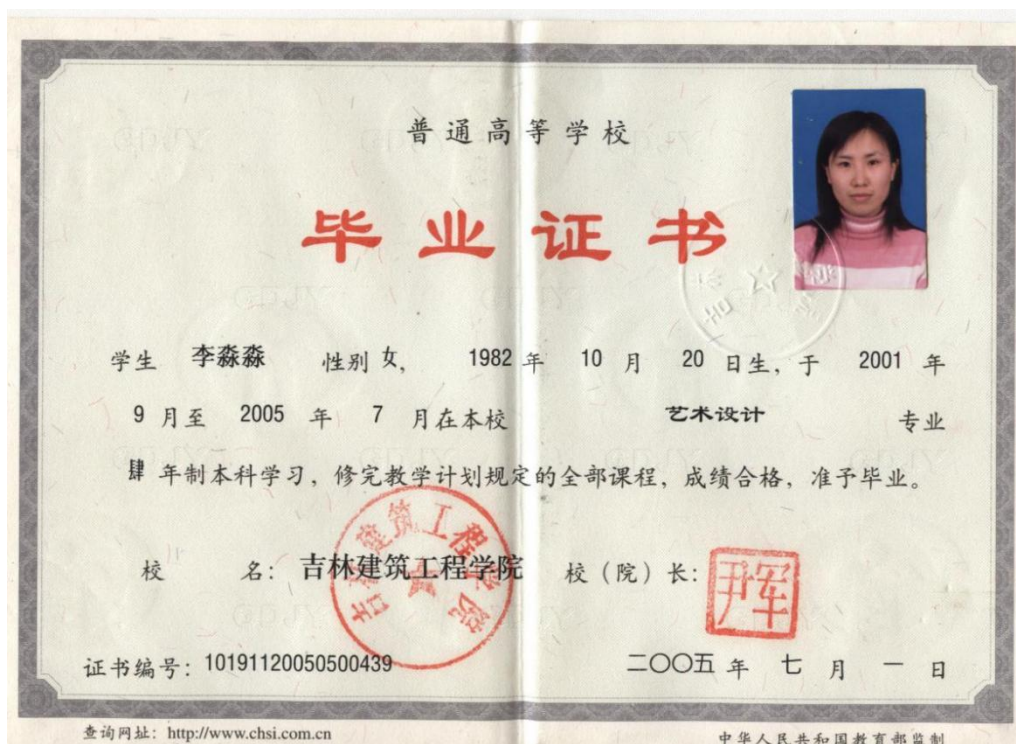 普通高等学校
毕业证书
学生 李淼淼 性别 女, 1982 年 10 月 20 日生, 于 2001 年
9 月至 2005 年 7 月在本校 艺术设计 专业
肆 年制本科学习, 修完教学计划规定的全部课程, 成绩合格, 准予毕业。
校 名: 吉林建筑工程学院 校(院)长: 尹军
吉林建筑工程学院
证书编号: 101911200505000439
二〇〇五 年 七 月 一 日
查询网址: http://www.chsi.com.cn
中华人民共和国教育部监制